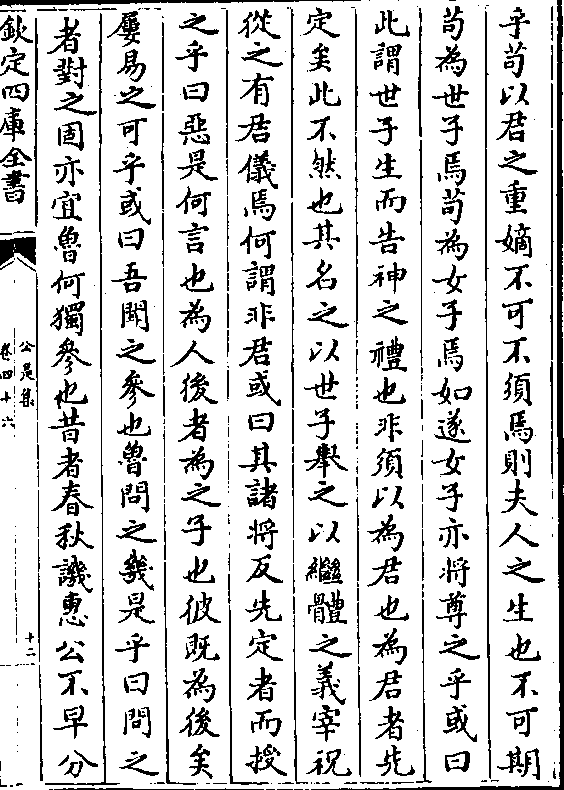 乎苟以君之重嫡不可不須焉則夫人之生也不可期
苟為世子焉苟為女子焉如遂女子亦將尊之乎或曰
此謂世子生而告神之禮也非須以為君也為君者先
定矣此不然也其名之以世子舉之以繼體之義宰祝
從之有君儀焉何謂非君或曰其諸將反先定者而授
之乎曰惡是何言也為人後者為之子也彼既為後矣
屢易之可乎或曰吾聞之參也魯問之幾是乎曰問之
者對之固亦宜魯何獨參也昔者春秋譏惠公不早分
欽定四庫全書
公是集
卷四十六
十二